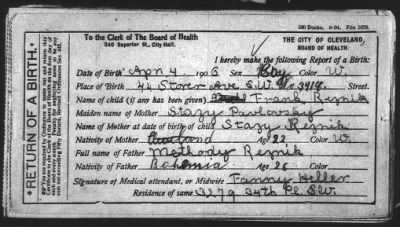 580 Books. 9-04. File 1079.
To the Clerk of The Board of Health
340 Superior St., City Hall.
THE CITY OF CLEVELAND,
BOARD OF HEALTH.
I hereby make the following Report of a Birth:
Date of Birth Apr. 4 1906 Sex Boy Color W.
Place of Birth 44 Storer Ave S.W. No 3419 Street.
Name of child (if any has been given) Frank Reznik
Maiden name of Mother Stazy Pavlorsky
Name of Mother at date of birth of child Stazy Reznik
Nativity of Mother Age 22 Color W
Full name of Father Methody Reznik
Nativity of Father Bohemia Age 26 Color
Signature of Medical attendant, or Midwife Fanny Heller
Residence of same 3279 34th Pl. S.W.
RETURN OF A BIRTH.